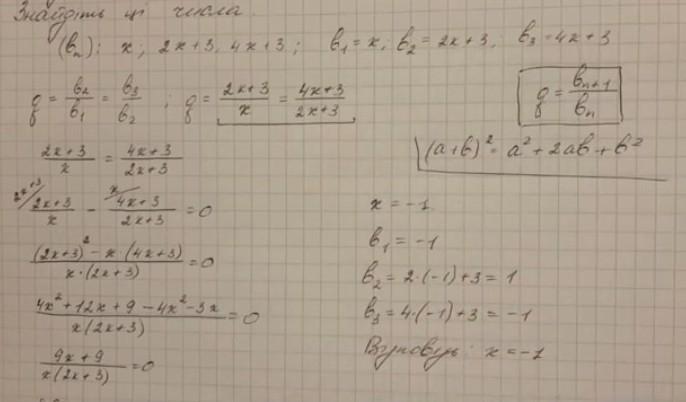 Знайдіть ці числа.
(bₙ): x; 2x+3, 4x+3; b₁ = x; b₂ = 2x+3; b₃ = 4x+3
q = b₂/b₁ = b₃/b₂ ; q = (2x+3)/x = (4x+3)/(2x+3)
q = bₙ₊₁/bₙ
(a+b)² = a² + 2ab + b²
(2x+3)/x = (4x+3)/(2x+3)
2x+3/ (2x+3)/x - x/ (4x+3)/(2x+3) = 0
((2x+3)² - x·(4x+3))/(x·(2x+3)) = 0
(4x² + 12x + 9 - 4x² - 3x)/(x(2x+3)) = 0
(9x+9)/(x(2x+3)) = 0
x = -1
b₁ = -1
b₂ = 2·(-1)+3 = 1
b₃ = 4·(-1)+3 = -1
x = -1